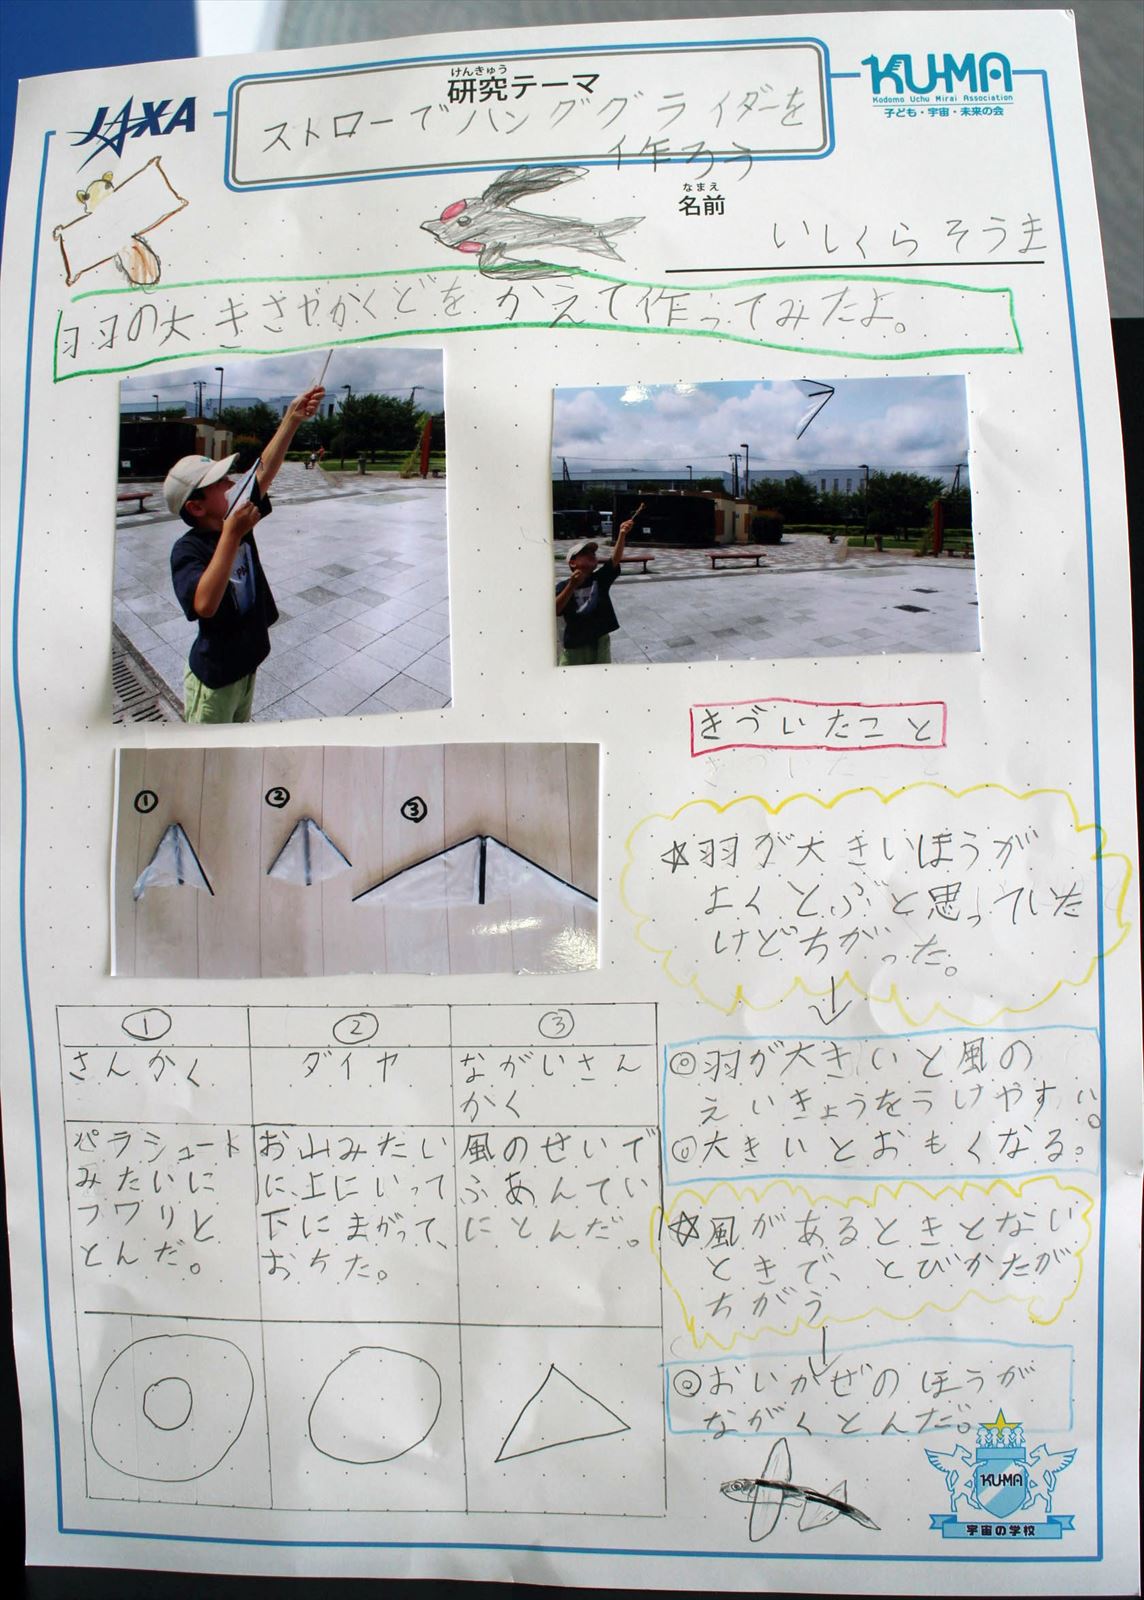 JAXA
けんきゅう
研究テーマ
KU-MA
Kodomo Uchu Mirai Association
子ども・宇宙・未来の会
ストローでハンググライダーを
作ろう
なまえ
名前
いしくらそうま
羽の大きさやかくどをかえて作ってみたよ。
① ② ③
きづいたこと
きづいたこと
☆羽が大きいほうが
よくとぶと思っていた
けどちがった。
↓
◎羽が大きいと風の
えいきょうをうけやすい。
◎大きいとおもくなる。
☆風があるときとない
ときで、とびかたが
ちがう
↓
◎おいかぜのほうが
ながくとんだ。
① ② ③
さんかく
ダイヤ
ながいさん
かく
パラシュート
みたいに
フワリと
とんだ。
お山みたい
に、上にいって
下にまがって、
おちた。
風のせいで
ふあんてい
にとんだ。
◎ ○ △
KU-MA
宇宙の学校